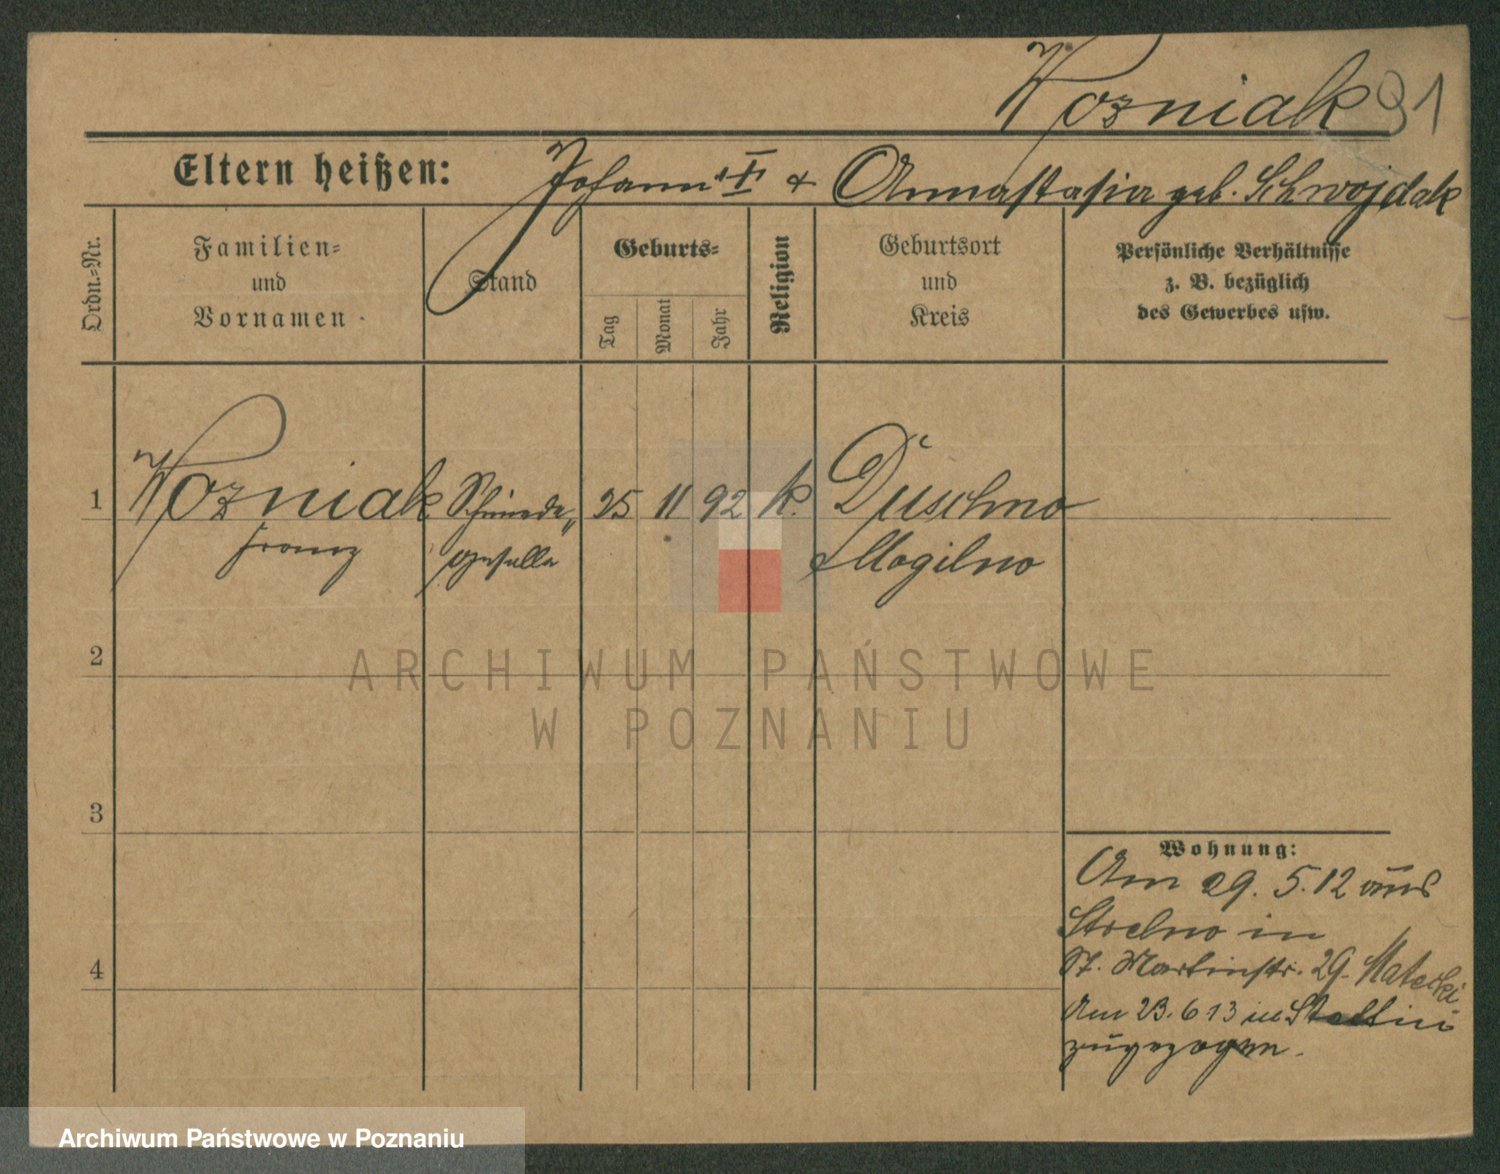 Wozniak 91
Eltern heißen: Johann I & Annastasia geb. Schwojdak
Ordn.=Nr.
Familien=
und
Vornamen
Stand
Geburts=
Tag
Monat
Jahr
Religion
Geburtsort
und
Kreis
Persönliche Verhältnisse
z. B. bezüglich
des Gewerbes usw.
1 Wozniak Schmiede„ 25 11 92 k. Duschno
Franz geselle Mogilno
2
3
4
Wohnung:
Am 29. 5. 12 aus
Strelno in
St. Martinstr. 29. Matecki
Am 23. 6 13 in
zugezogen.
ARCHIWUM PAŃSTWOWE
W POZNANIU
Archiwum Państwowe w Poznaniu